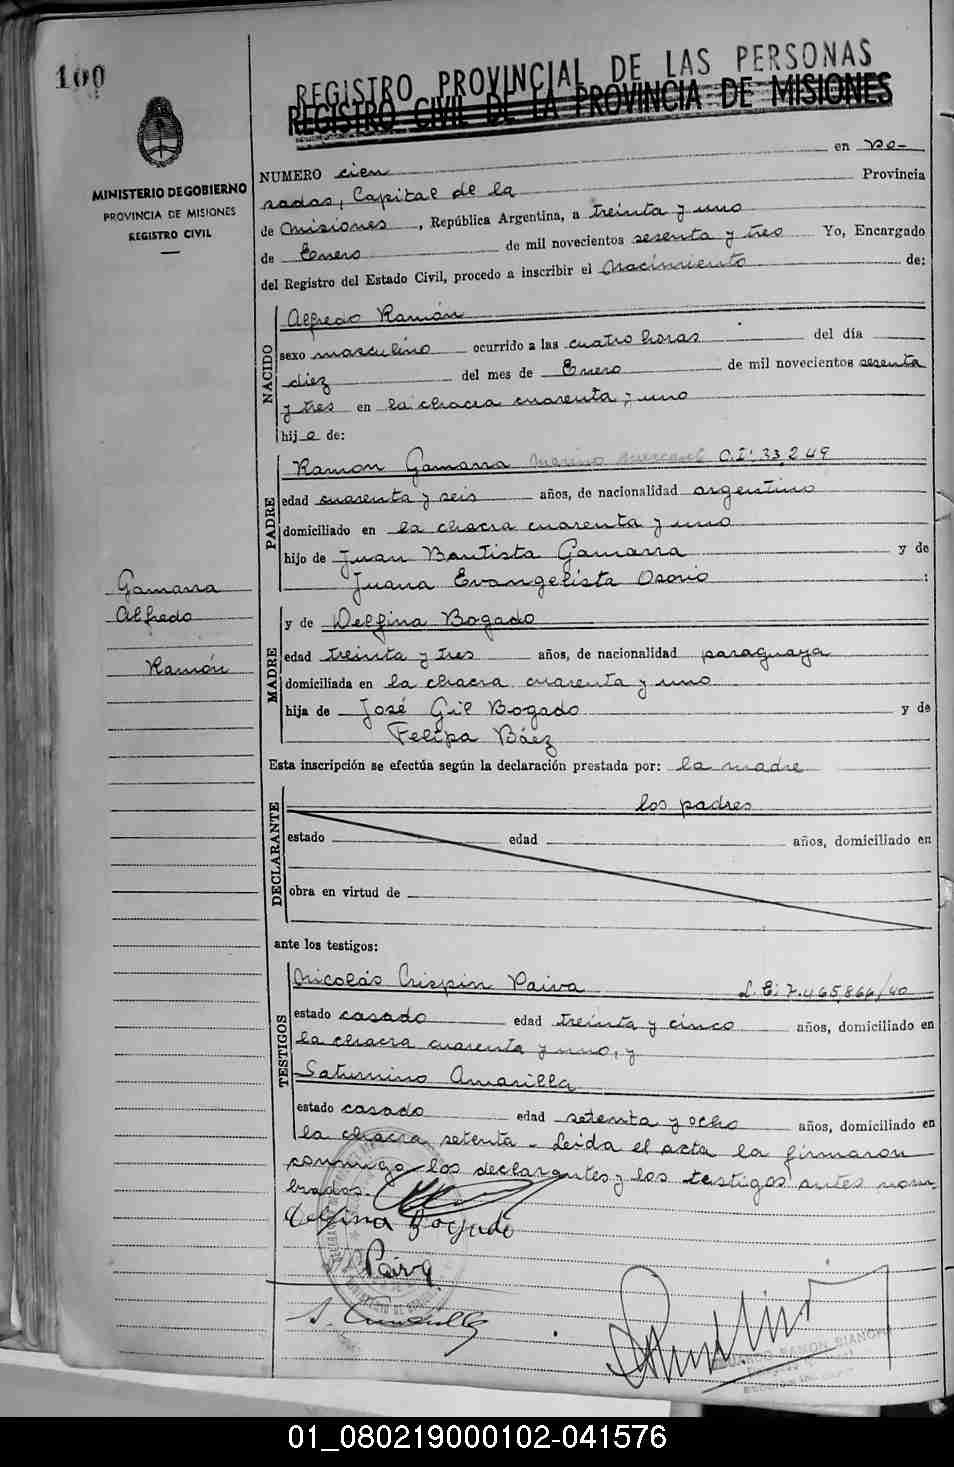 100
REGISTRO PROVINCIAL DE LAS PERSONAS
REGISTRO CIVIL DE LA PROVINCIA DE MISIONES
MINISTERIO DE GOBIERNO
PROVINCIA DE MISIONES
REGISTRO CIVIL
NUMERO cien en Po-
sadas, Capital de la Provincia
de Misiones, República Argentina, a treinta y uno
de Enero de mil novecientos sesenta y tres Yo, Encargado
del Registro del Estado Civil, procedo a inscribir el Nacimiento de:
NACIDO
Alfredo Ramón
sexo masculino ocurrido a las cuatro horas del día
diez del mes de Enero de mil novecientos sesenta
y tres en la chacra cuarenta y uno
hijo de:
PADRE
Ramon Gamarra Marino Mercant C.I: 33,249
edad cuarenta y seis años, de nacionalidad argentino
domiciliado en la chacra cuarenta y uno
hijo de Juan Bautista Gamarra y de
Juana Evangelista Osorio :
Gamarra
Alfredo
Ramón
MADRE
y de Delfina Bogado
edad treinta y tres años, de nacionalidad paraguaya
domiciliada en la chacra cuarenta y uno
hija de José Gil Bogado y de
Felipa Báez
Esta inscripción se efectúa según la declaración prestada por: la madre
los padres
DECLARANTE
estado edad años, domiciliado en
obra en virtud de
ante los testigos:
TESTIGOS
Nicolás Crispin Paiva L.E: 7.465,866/40
estado casado edad treinta y cinco años, domiciliado en
la chacra cuarenta y uno, y
Saturnino Amarilla
estado casado edad setenta y ocho años, domiciliado en
la chacra setenta - Leida el acta la firmaron
conmigo los declarantes y los testigos antes nom-
brados.
Delfina Bogado
Paiva
S. Amarilla
EDUARDO RAMON BIANCHI
01_080219000102-041576